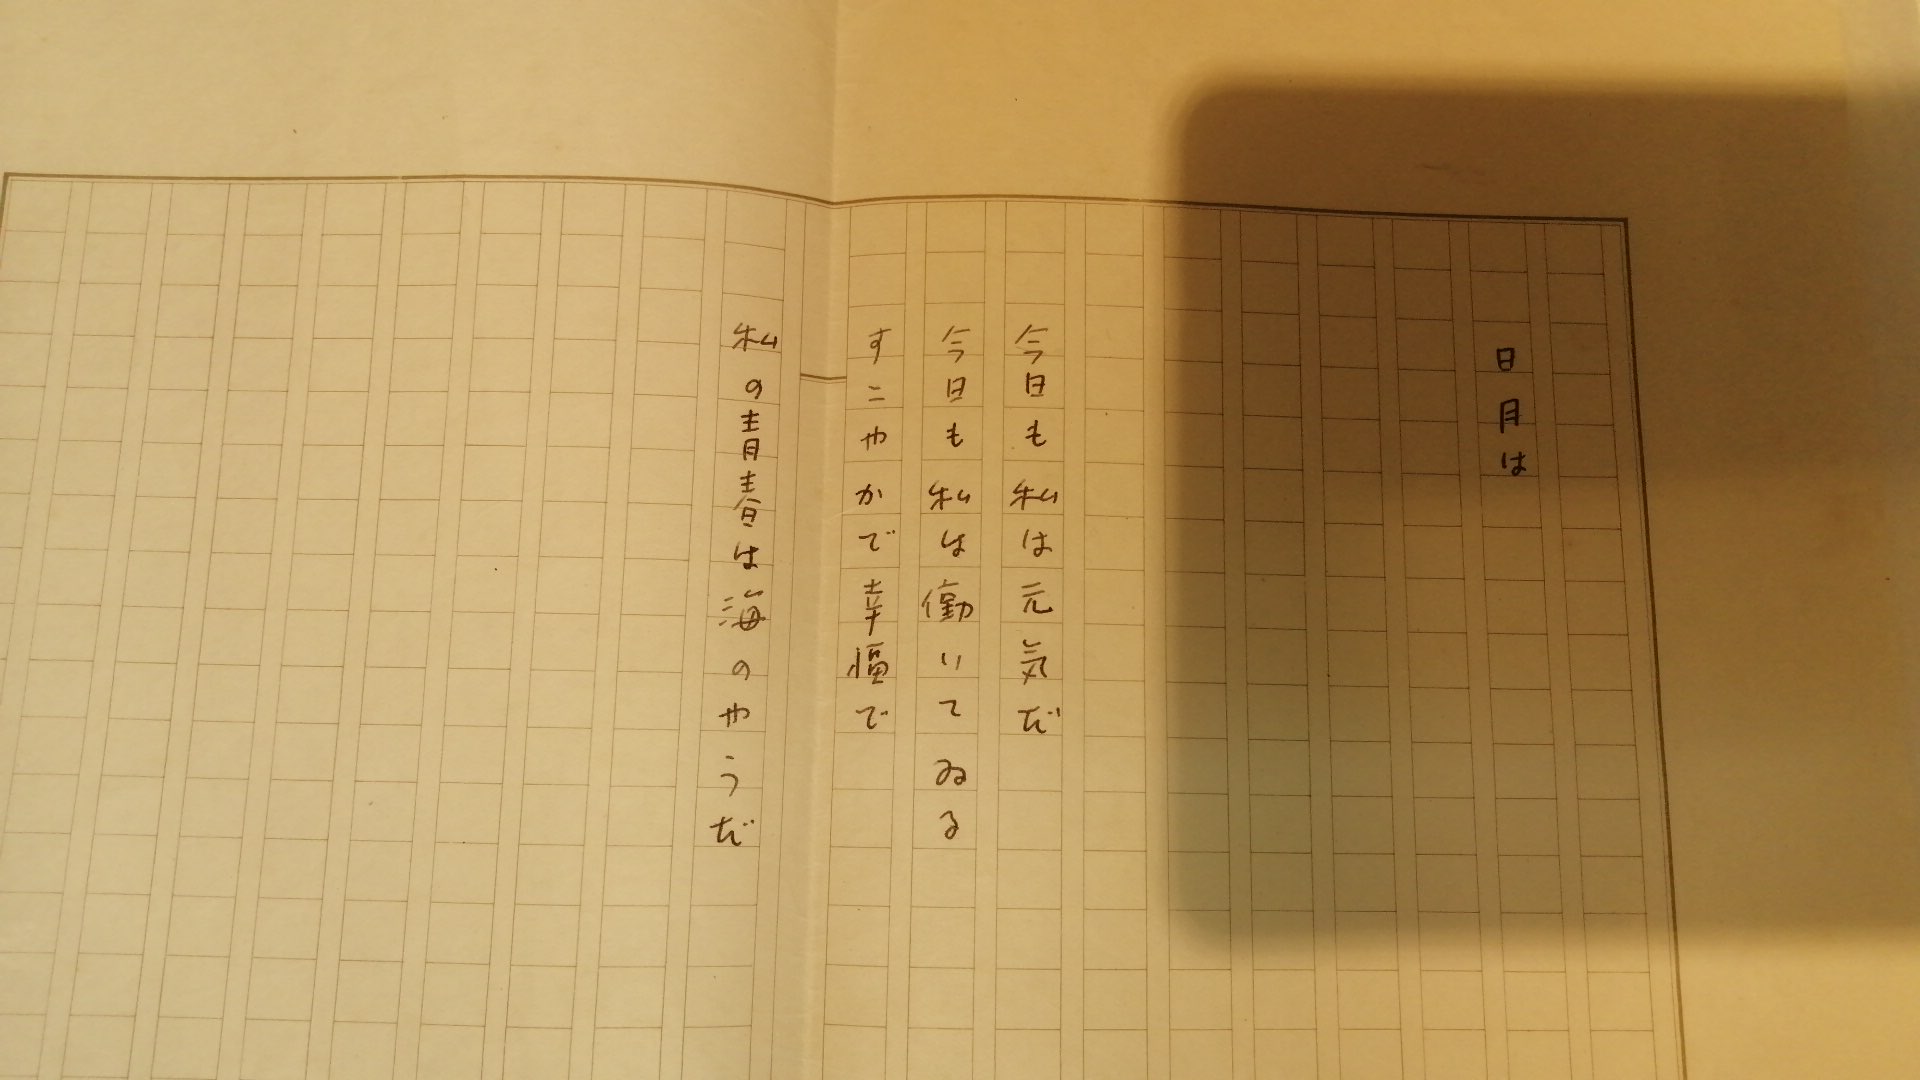 日月は
今日も私は元気だ
今日も私は働いてゐる
すこやかで幸福で
私の青春は海のやうだ